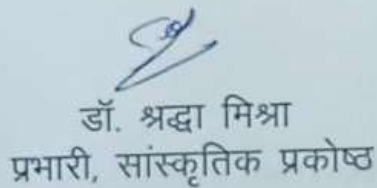 डॉ. श्रद्धा मिश्रा
प्रभारी, सांस्कृतिक प्रकोष्ठ